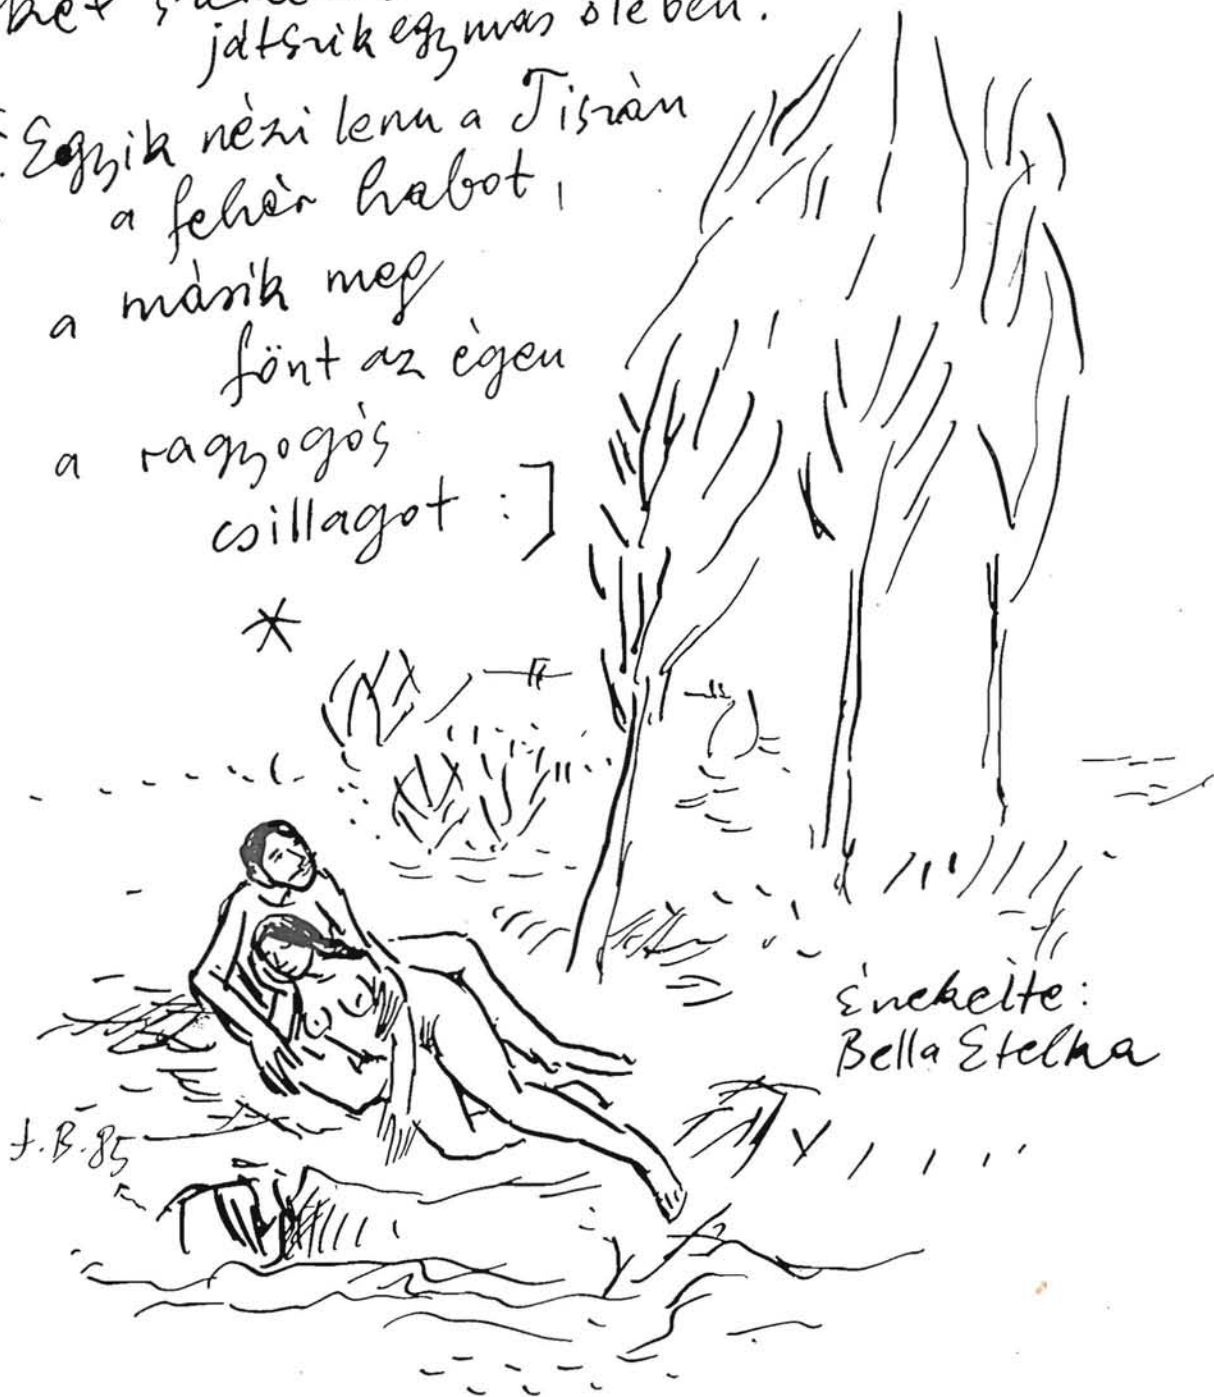 két
játszik egymás ölében.
[: Egyik nézi lenn a Tiszán
a fehér habot,
a másik meg
fönt az égen
a ragyogós
csillagot :]
*
Énekelte:
Bella Etelka
f.B.85